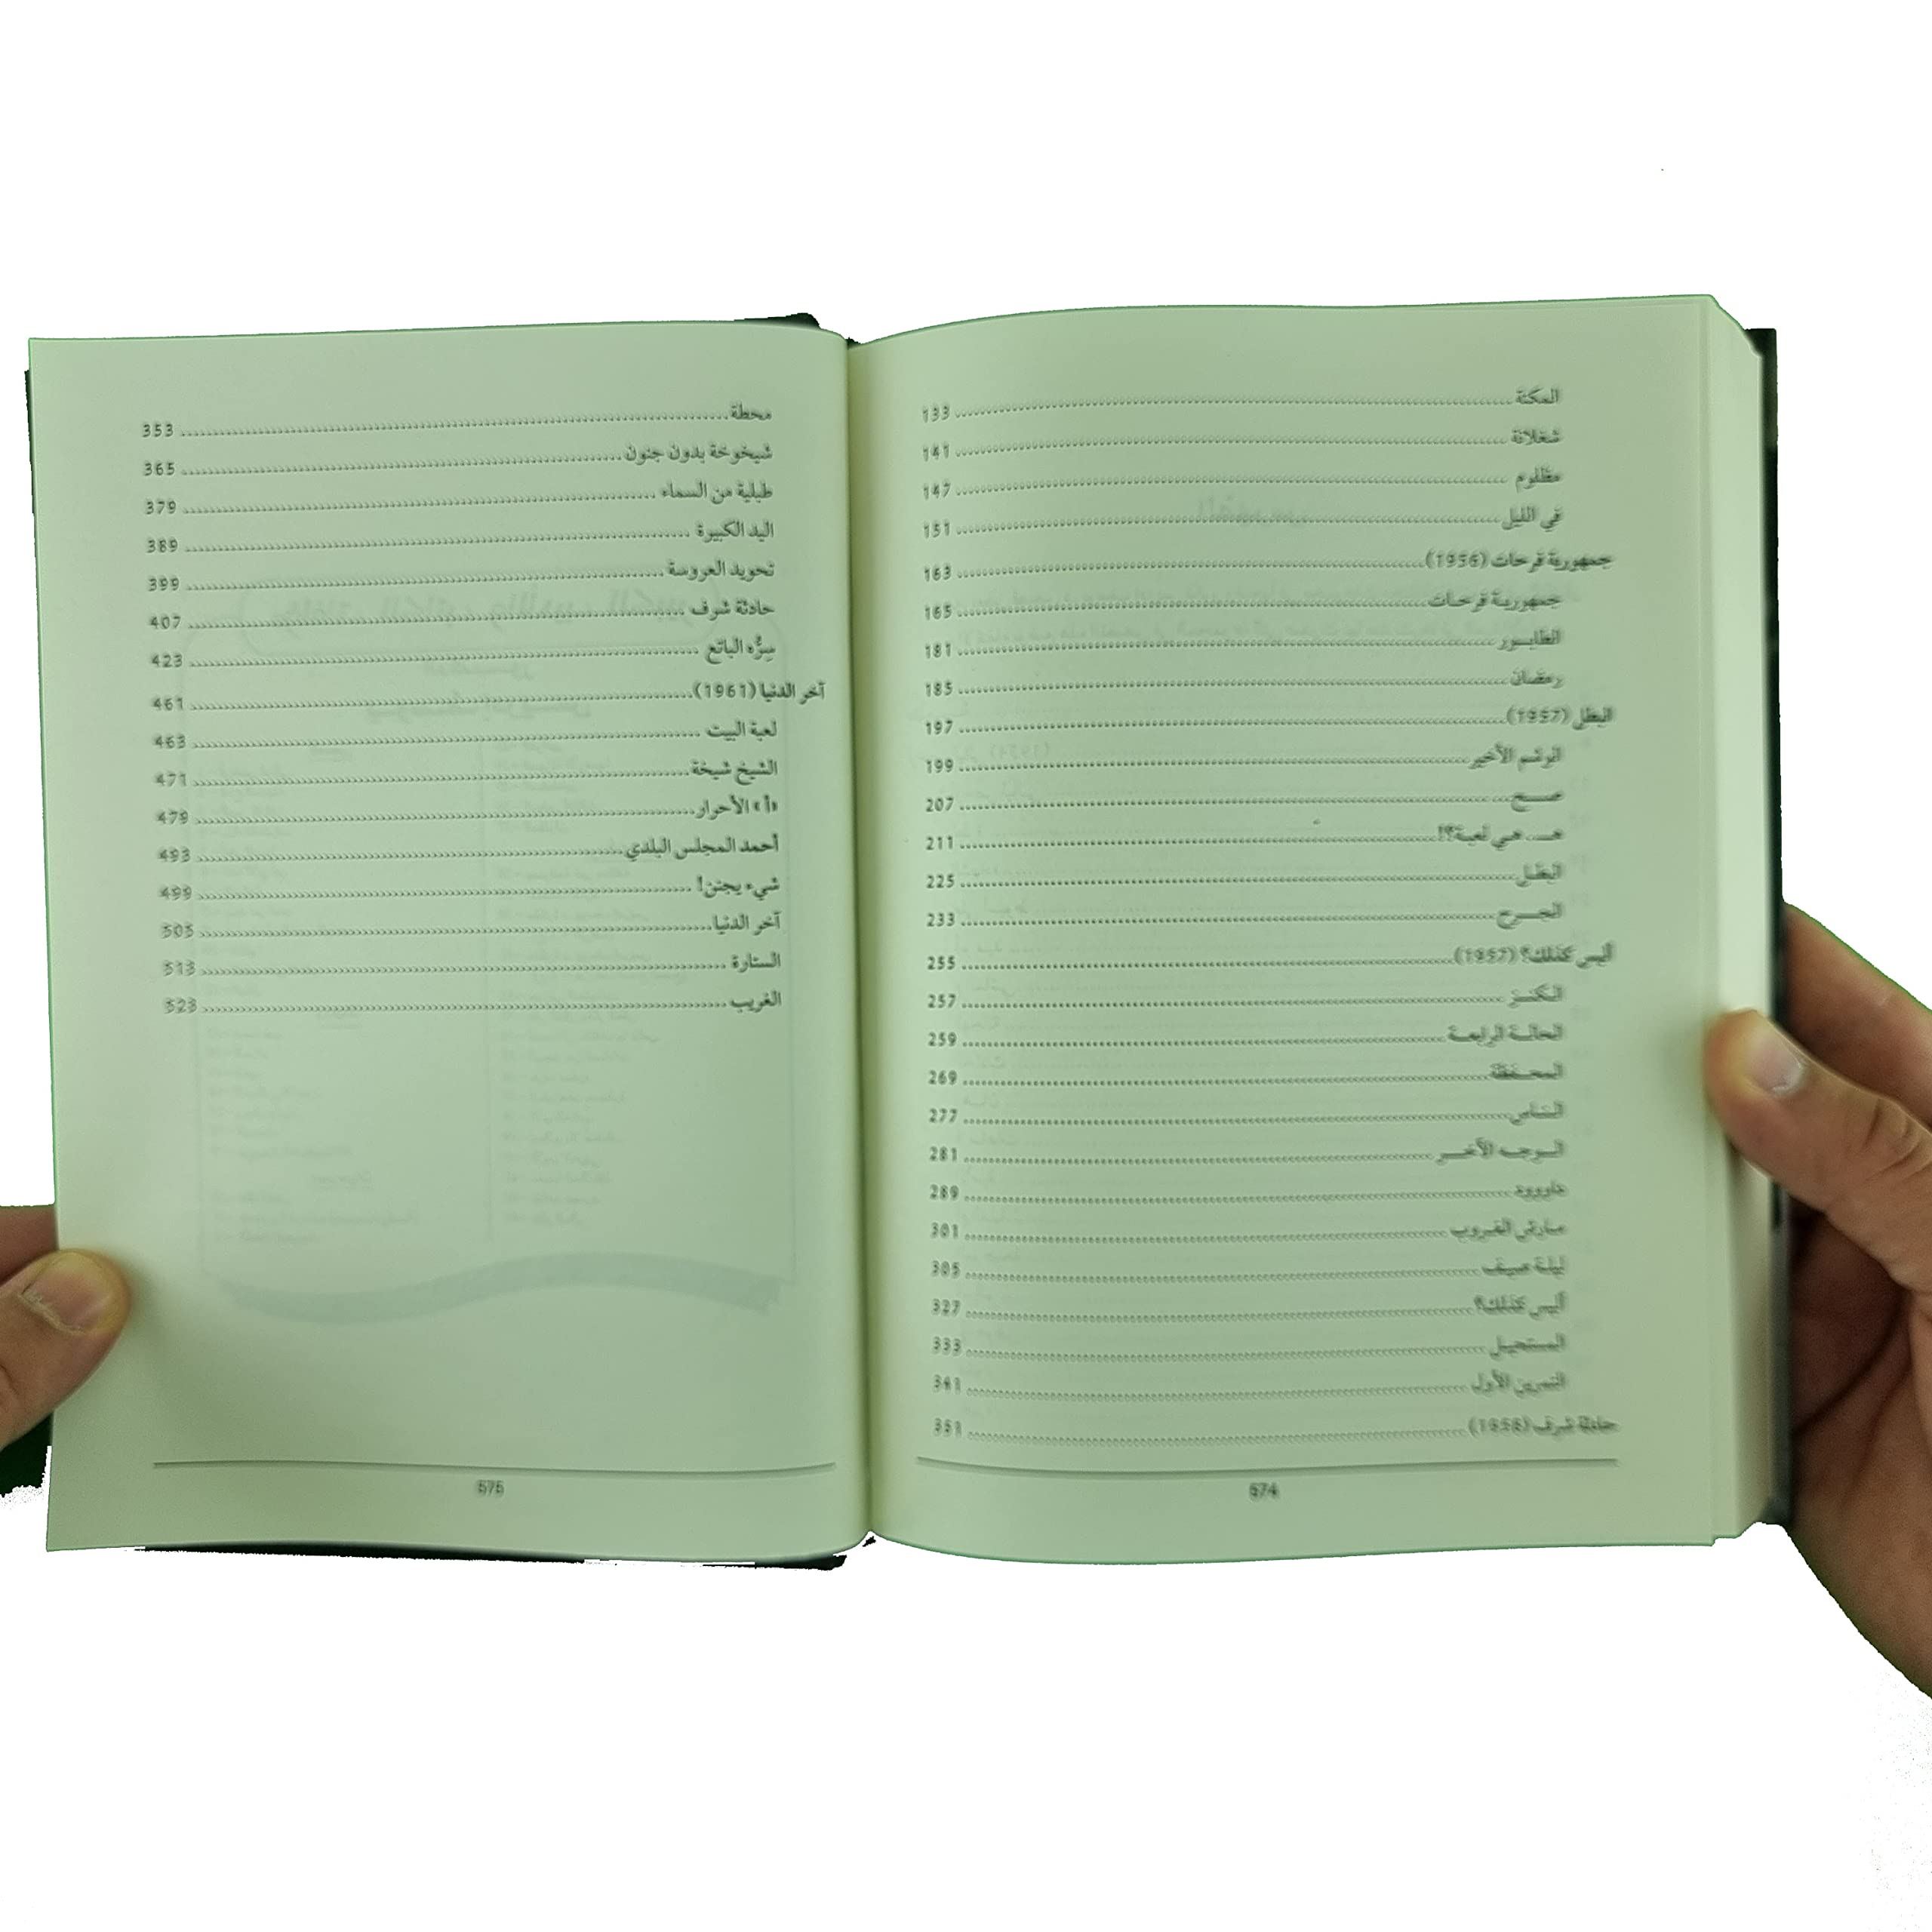 المكنة 133
شغلانة 141
مظلوم 147
في الليل 151
جمهورية فرحات (1956) 163
جمهورية فرحات 165
الطابور 181
رمضان 185
البطل (1957) 197
الوشم الأخير 199
صح 207
هـ.. هي لعبة؟! 211
البطل 225
الجرح 233
أليس كذلك؟ (1957) 255
الكنز 257
الحالة الرابعة 259
المحفظة 269
الناس 277
الوجه الآخر 281
داوود 289
مارش الغروب 301
ليلة صيف 305
أليس كذلك؟ 327
المستحيل 333
التمرين الأول 341
حادثة شرف (1958) 351
574
محطة 353
شيخوخة بدون جنون 365
طبلية من السماء 379
اليد الكبيرة 389
تحويد العروسة 399
حادثة شرف 407
سِرُّه الباتع 423
آخر الدنيا (1961) 461
لعبة البيت 463
الشيخ شيخة 471
«أ» الأحرار 479
أحمد المجلس البلدي 493
شيء يجنن! 499
آخر الدنيا 503
الستارة 513
الغريب 523
575